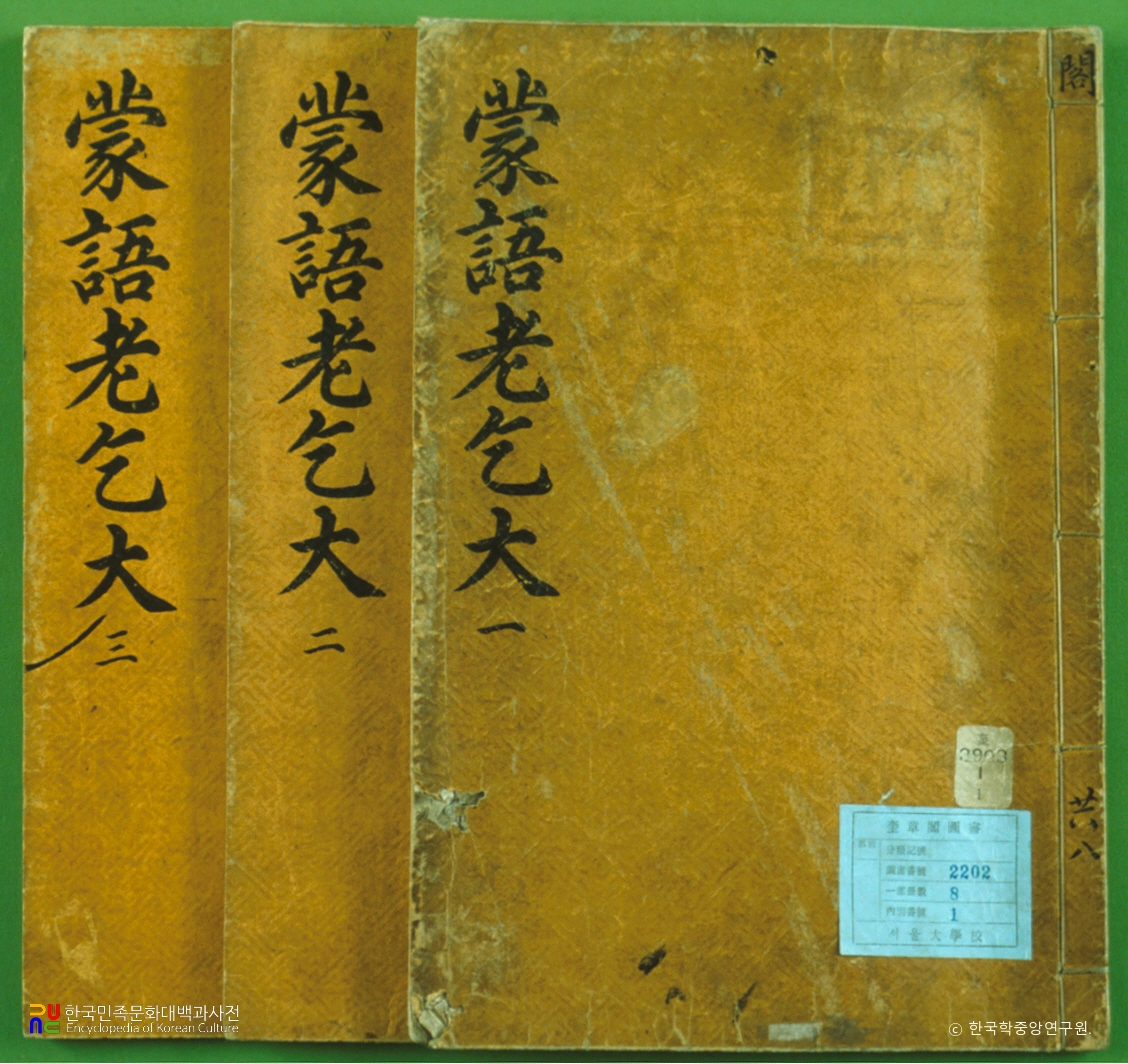 蒙語老乞大
一
蒙語老乞大
二
蒙語老乞大
三
閣
共八
3903
1
1
奎章閣圖書
分類記號
圖書番號 2202
一部冊數 8
內別番號 1
서울大學校
한국민족문화대백과사전
Encyclopedia of Korean Culture
ⓒ 한국학중앙연구원